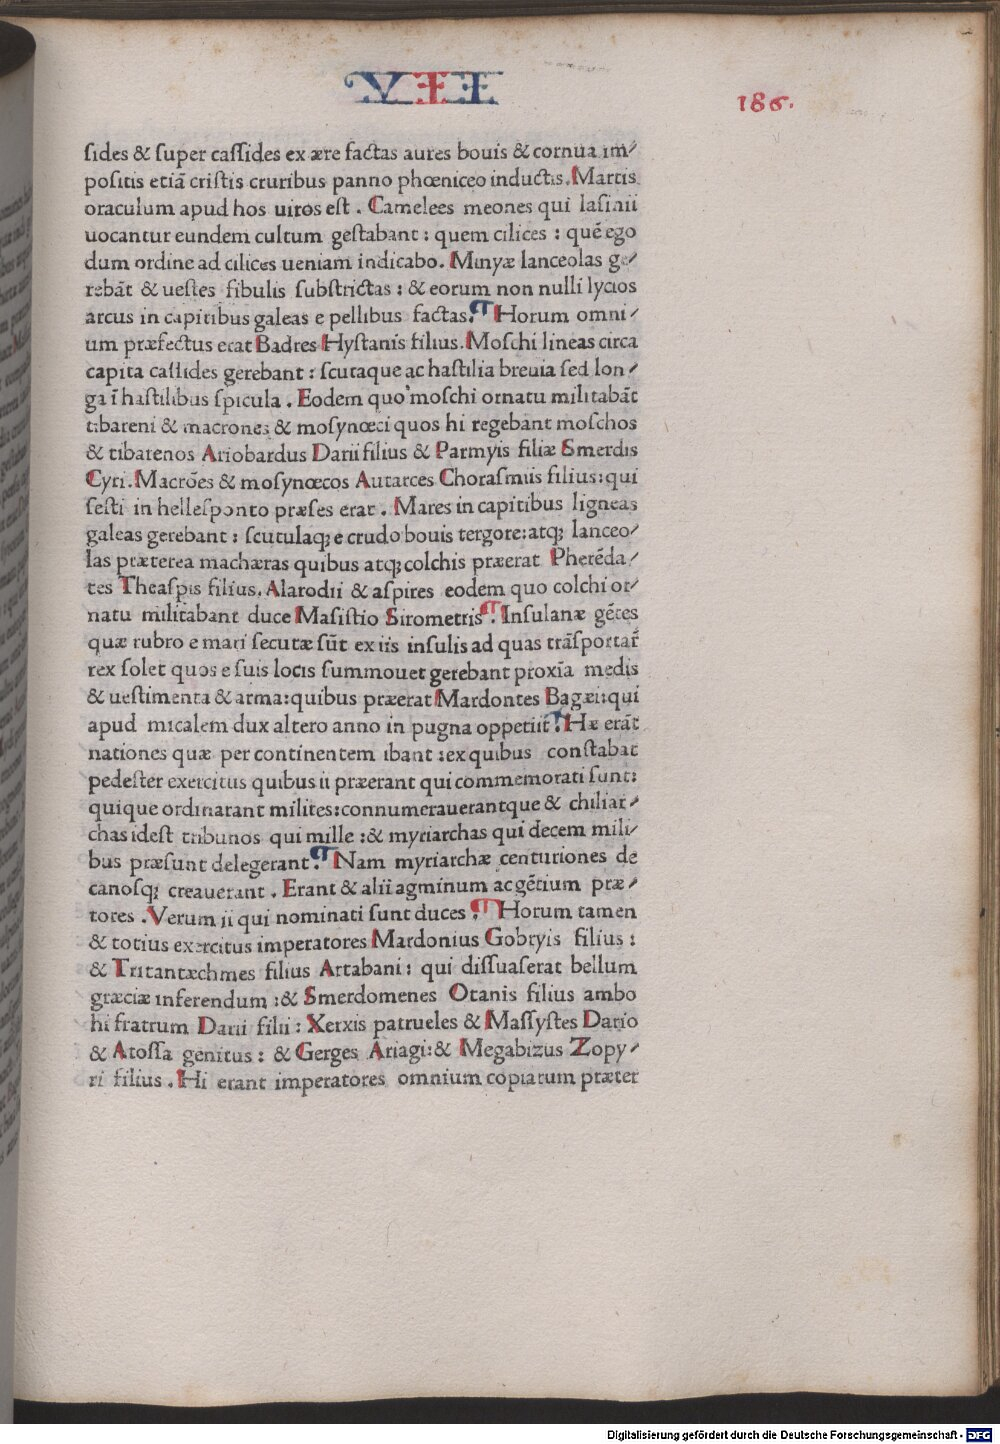 VII
186.
sides & super cassides ex ære factas aures bouis & cornua im⸗
positis etiā cristis cruribus panno phœniceo inductis. Martis
oraculum apud hos uiros est . Camelees meones qui lasinii
uocantur eundem cultum gestabant : quem cilices : quē ego
dum ordine ad cilices ueniam indicabo. Minyæ lanceolas ge⸗
rebāt & uestes fibulis substrictas : & eorum non nulli lycios
arcus in capitibus galeas e pellibus factas. ¶ Horum omni⸗
um præfectus erat Badres Hystanis filius. Moschi lineas circa
capita cassides gerebant : scutaque ac hastilia breuia sed lon⸗
ga ī hastilibus spicula . Eodem quo moschi ornatu militabāt
tibareni & macrones & mosynœci quos hi regebant moschos
& tibarenos Ariobardus Darii filius & Parmyis filiæ Smerdis
Cyri. Macrōes & mosynœcos Autarces Chorasmiis filius: qui
sesti in hellesponto præses erat . Mares in capitibus ligneas
galeas gerebant : scutulaq; e crudo bouis tergore: atq; lanceo⸗
las præterea machæras quibus atq; colchis præerat Pherēda⸗
tes Theaspis filius. Alarodii & aspires eodem quo colchi or⸗
natu militabant duce Masistio Sirometris. ¶ Insulanæ gētes
quæ rubro e mari secutæ sūt ex iis insulis ad quas trāsportar̄
rex solet quos e suis locis summouet gerebant proxīa medis
& uestimenta & arma: quibus præerat Mardontes Bagæi: qui
apud micalem dux altero anno in pugna oppetiit. ¶ Hæ erāt
nationes quæ per continentem ibant : ex quibus constabat
pedester exercitus quibus ii præerant qui commemorati sunt:
quique ordinarant milites: connumerauerantque & chiliar⸗
chas idest tribunos qui mille : & myriarchas qui decem mili⸗
bus præsunt delegerant. ¶ Nam myriarchæ centuriones de
canosq; creauerant . Erant & alii agminum ac gētium præ⸗
tores . Verum ii qui nominati sunt duces . ¶ Horum tamen
& totius exercitus imperatores Mardonius Gobryis filius :
& Tritantæchmes filius Artabani : qui dissuaserat bellum
græciæ inferendum : & Smerdomenes Otanis filius ambo
hi fratrum Darii filii : Xerxis patrueles & Massystes Dario
& Atossa genitus : & Gerges Ariagi: & Megabizus Zopy⸗
ri filius . Hi erant imperatores omnium copiarum præter
Digitalisierung gefördert durch die Deutsche Forschungsgemeinschaft - DFG